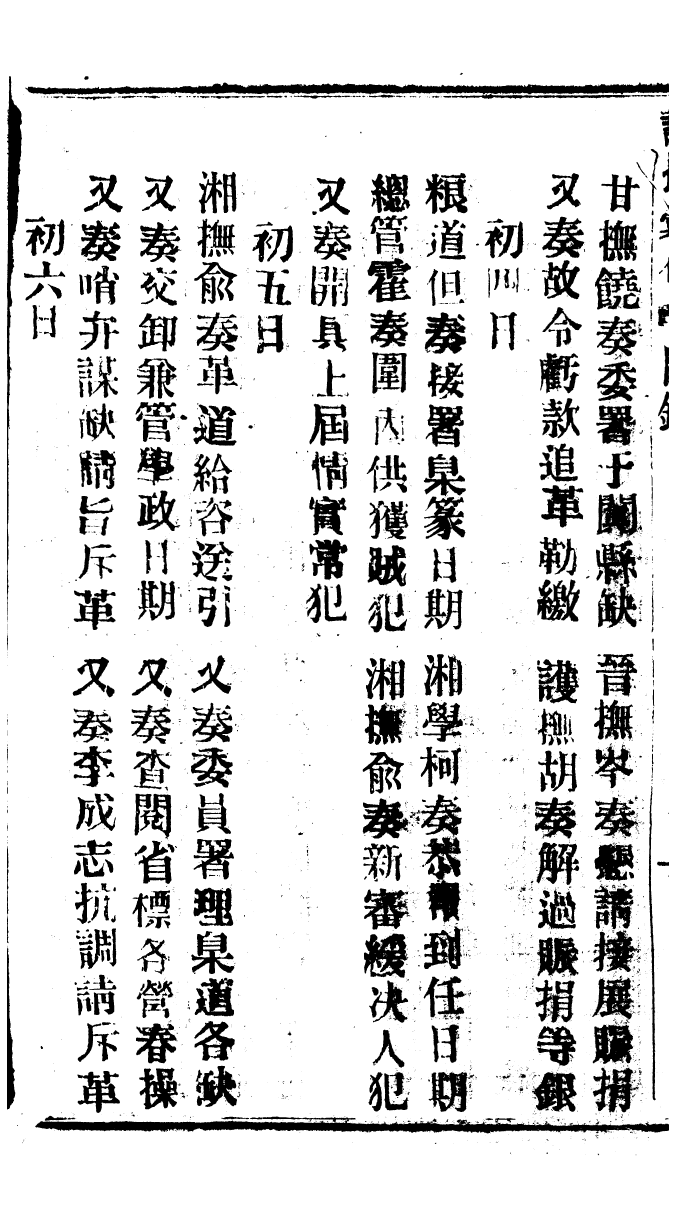 甘撫饒奏委署于闐縣缺　晉撫岑奏懇請接展賑捐
又奏故令虧款追革勒繳　護撫胡奏解過賑捐等銀
初四日
粮道但奏接署臬篆日期　湘學柯奏恭報到任日期
總管霍奏圍內供獲賊犯　湘撫俞奏新審緩决人犯
又奏開具上屆情實常犯
初五日
湘撫俞奏革道給咨送引　又奏委員署理臬道各缺
又奏交卸兼管學政日期　又奏查閱省標各營春操
又奏哨弁謀缺請旨斥革　又奏李成志抗調請斥革
初六日